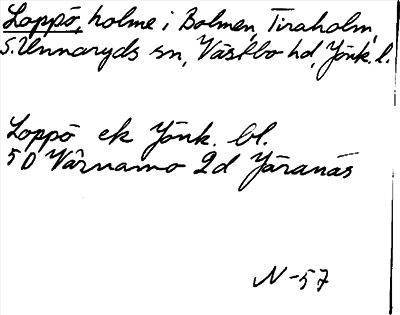 Loppö, holme i Bolmen, Tiraholm,
S. Unnaryds sn, Västbo hd, Jönk. l.
Loppö ek Jönk. bl.
5D Värnamo 2d Järanäs
N-57